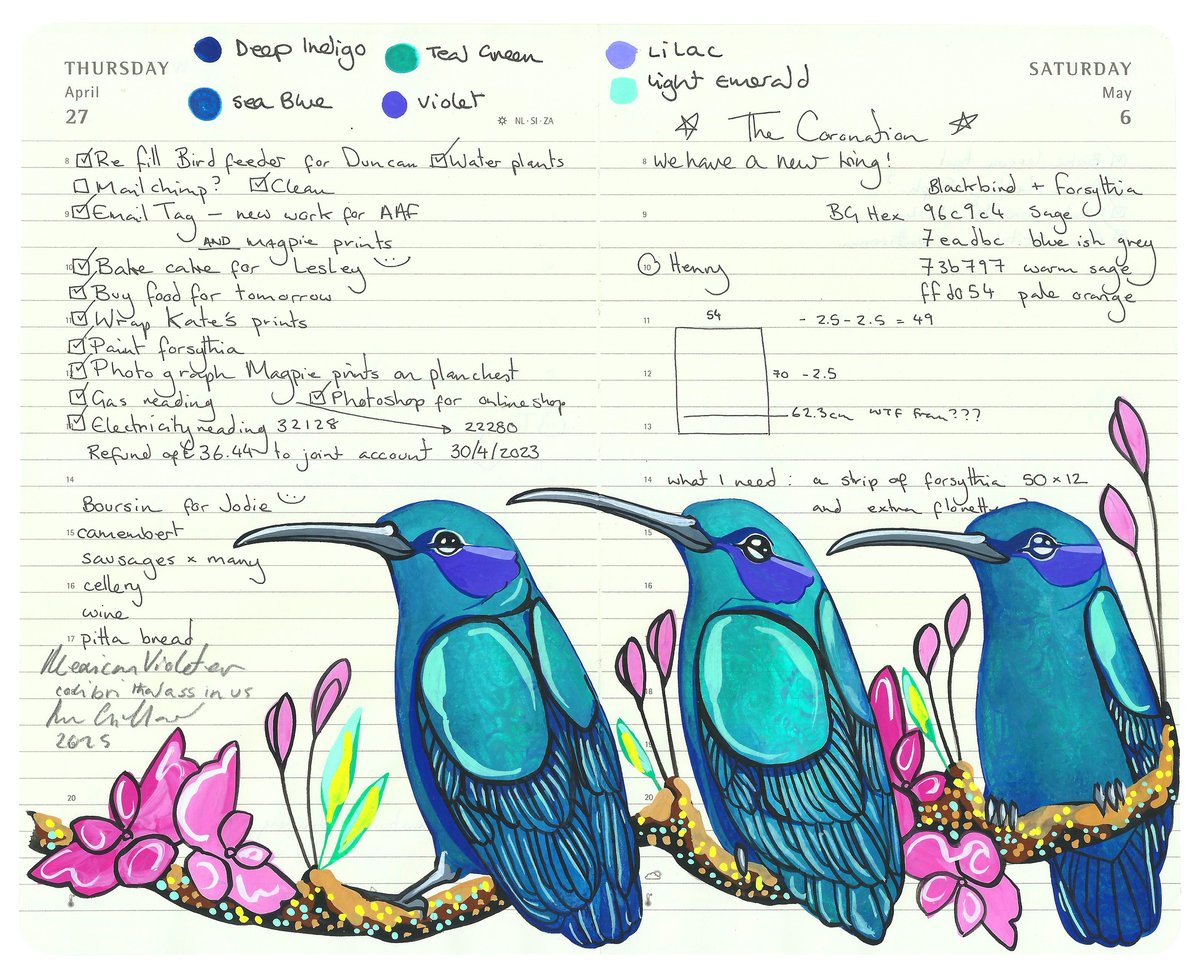 THURSDAY
April
27
Deep Indigo
Teal Green
Sea Blue
Violet
NL·SI·ZA
8 ☑ Re fill Bird feeder for Duncan ☑ Water plants
☐ Mail chimp? ☑ Clean
9 ☑ Email Tag – new work for AAF
AND magpie prints
10 ☑ Bake cake for Lesley
☑ Buy food for tomorrow
11 ☑ Wrap Kate's prints
☑ Paint forsythia
☑ Photograph Magpie prints on planchest
☑ Gas reading ☑ Photoshop for online shop
☑ Electricity reading 32128 22280
Refund of £36.44 to joint account 30/4/2023
14
Boursin for Jodie
15 camembert
sausages x many
16 cellery
wine
17 pitta bread
Mexican Violet ear
colibri thalassinus
2025
20
Lilac
light Emerald
SATURDAY
May
6
The Coronation
8 we have a new king!
Blackbird + Forsythia
9 BG Hex 96c9c4 sage
7eadbc blue ish grey
10 Henry 73b797 warm sage
ffd054 pale orange
11 54 - 2.5 - 2.5 = 49
12 70 - 2.5
62.3cm WTF Fran???
13
14 what I need: a strip of forsythia 50 x 12
and extra florette
15
16
18
19
20